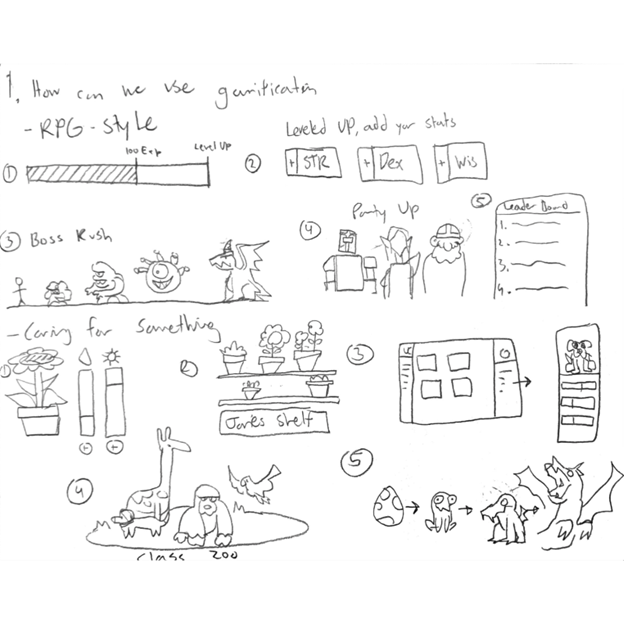 1. How can we use gamification
- RPG - Style
① 100 Exp Level Up
② Leveled UP, add your stats
+ STR + Dex + Wis
③ Boss Rush
④ Party Up
⑤ Leader Board
1.
2.
3.
4.
- Caring for Something
①
+ +
②
James Shelf
③
④
class zoo
⑤